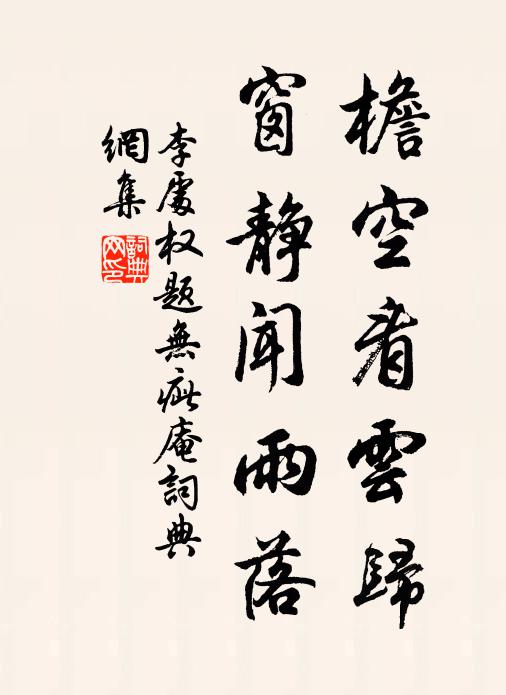 檐空看雲歸
窗静聞雨落
李處权題無疵庵詞典
網集
詞典网印